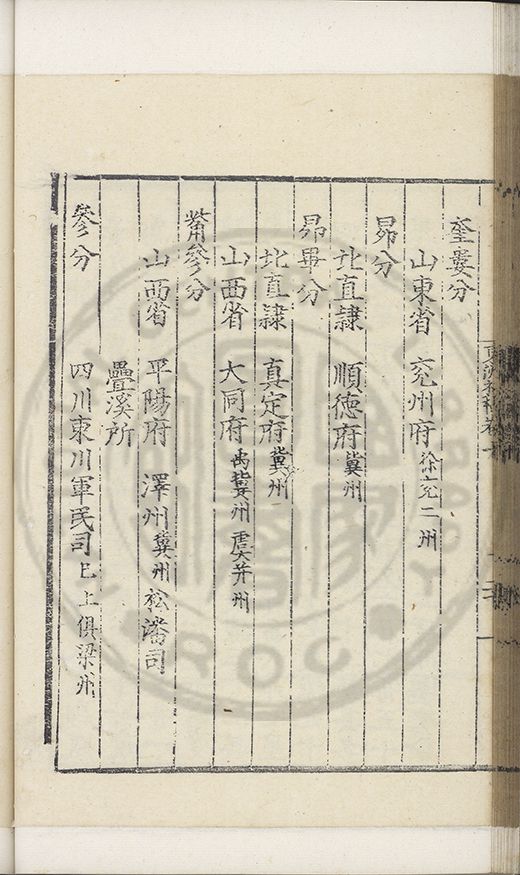 奎婁分
山東省 兖州府 徐兖二州
昴分
北直隷 順德府 冀州
昴畢分
北直隷 真定府 冀州
山西省 大同府 禹冀州 虞并州
觜參分
山西省 平陽府 澤州 冀州 松潘司
疊溪所
參分 四川東川軍民司 已上俱梁州